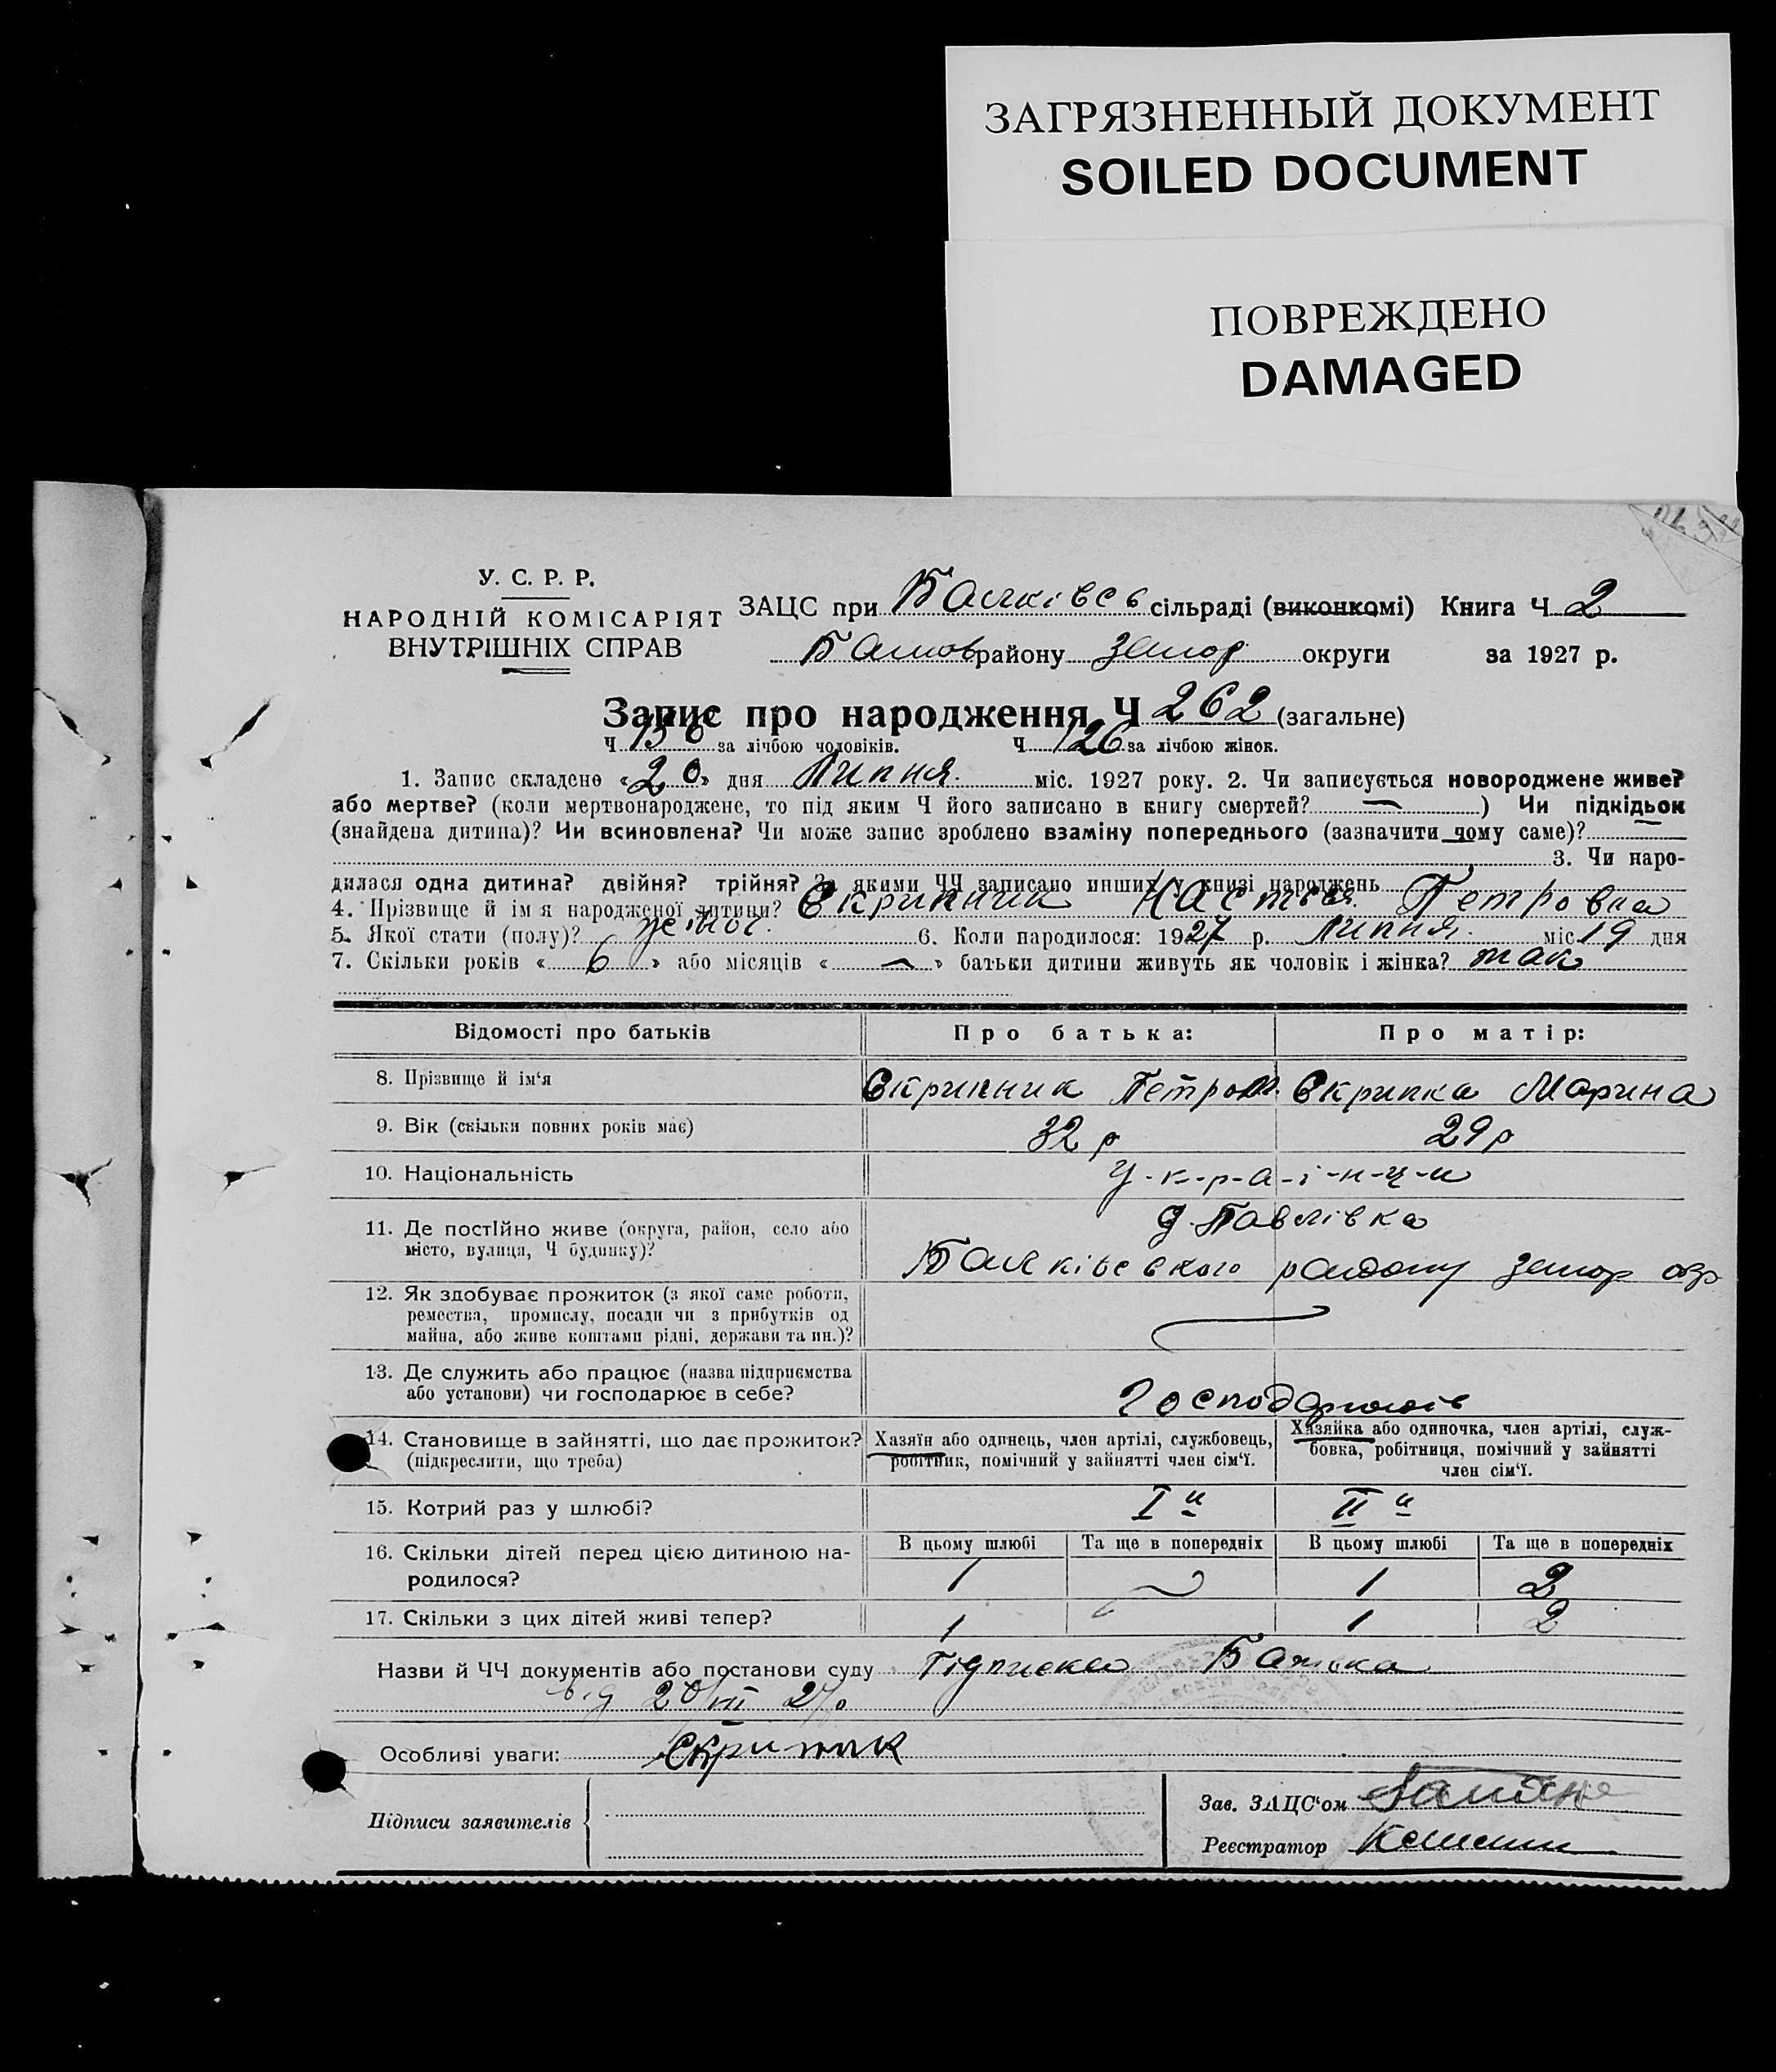 ЗАГРЯЗНЕННЫЙ ДОКУМЕНТ
SOILED DOCUMENT
ПОВРЕЖДЕНО
DAMAGED
У. С. Р. Р.
НАРОДНІЙ КОМІСАРІЯТ
ВНУТРІШНІХ СПРАВ
ЗАЦС при Балківсь сільраді (виконкомі) Книга Ч 2
району Запор округи за 1927 р.
Запис про народження Ч 262 (загальне)
Ч 136 за лічбою чоловіків. Ч 126 за лічбою жінок.
1. Запис складено «20» дня Липня міс. 1927 року. 2. Чи записується новороджене живе?
або мертве? (коли мертвонароджене, то під яким Ч його записано в книгу смертей? —) Чи підкідьок
(знайдена дитина)? Чи всиновлена? Чи може запис зроблено взаміну попереднього (зазначити чому саме)?
3. Чи наро-
дилася одна дитина? двійня? трійня? За якими ЧЧ записано инших у книзі народжень
4. Прізвище й ім'я народженої дитини? Скрипник Настя Петровна
5. Якої стати (полу)? жіноч. 6. Коли народилося: 1927 р. Липня міс 19 дня
7. Скільки років «6» або місяців «—» батьки дитини живуть як чоловік і жінка? так
Відомості про батьків Про батька: Про матір:
8. Прізвище й ім'я Скрипник Петро Скрипка Марина
9. Вік (скільки повних років має) 32 р 29 р
10. Національність У-к-р-а-і-н-ц-и
11. Де постійно живе (округа, район, село або д. Павлівка
місто, вулиця, Ч будинку)? Балківського району запор окр
12. Як здобуває прожиток (з якої саме роботи,
ремества, промислу, посади чи з прибутків од
майна, або живе коштами рідні, держави та ин.)?
13. Де служить або працює (назва підприємства
або установи) чи господарює в себе? Господарюють
14. Становище в зайнятті, що дає прожиток?
(підкреслити, що треба)
Хазяїн або одинець, член артілі, службовець,
робітник, помічний у зайнятті член сім'ї.
Хазяйка або одиночка, член артілі, служ-
бовка, робітниця, помічний у зайнятті
член сім'ї.
15. Котрий раз у шлюбі? I й II й
16. Скільки дітей перед цією дитиною на-
родилося?
В цьому шлюбі Та ще в попередніх В цьому шлюбі Та ще в попередніх
1 1 2
17. Скільки з цих дітей живі тепер? 1 1 2
Назви й ЧЧ документів або постанови суду Підписка Батька
від 20/VII 27 р
Особливі уваги: Скрипник
Підписи заявителів
Зав. ЗАЦС'ом
Реєстратор